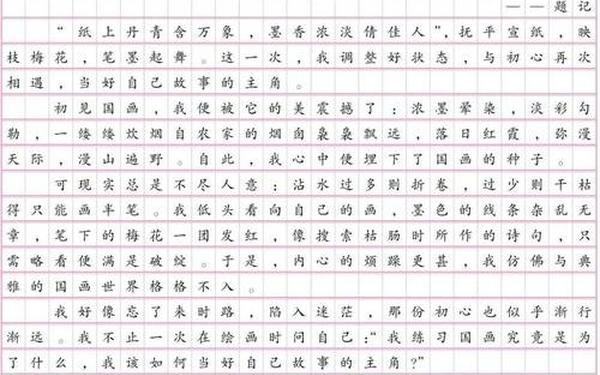 ——题记
“纸上丹青含万象，墨香浓淡倩佳人”，抚平宣纸，映
枝梅花，笔墨起舞。这一次，我调整好状态，与初心再次
相遇，当好自己故事的主角。
初见国画，我便被它的美震撼了：浓墨晕染，淡彩勾
勒，一缕缕炊烟自农家的烟囱袅袅飘远，落日红霞，弥漫
天际，漫山遍野。自此，我心中便埋下了国画的种子。
可现实总是不尽人意：沾水过多则折卷，过少则干枯
得只能画半笔。我低头看向自己的画，墨色的线条杂乱无
章，笔下的梅花一团发红，像搜索枯肠时所作的诗句，只
需略看便满是破绽。于是，内心的烦躁更甚，我仿佛与典
雅的国画世界格格不入。
我好像忘了来时路，陷入迷茫，那份初心也似乎渐行
渐远。我不止一次在绘画时问自己：“我练习国画究竟是为
了什么，我该如何当好自己故事的主角?”